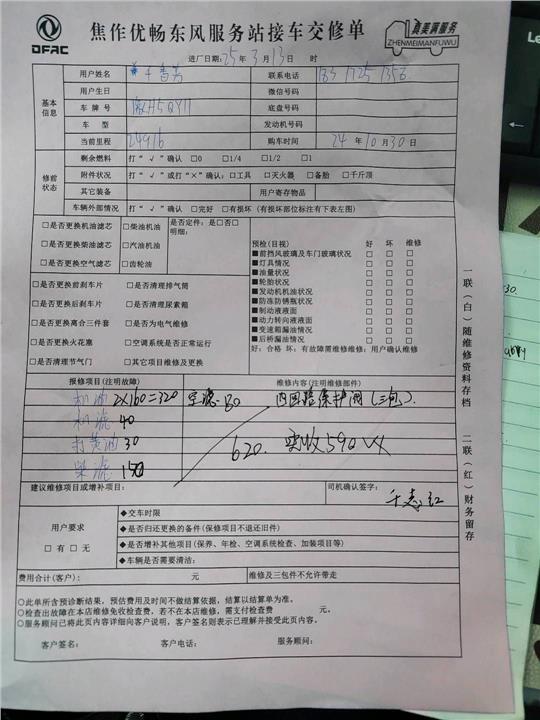 DFAC
焦作优畅东风服务站接车交修单
真美满服务
ZHENMEIMANFUWU
进厂日期:25年3月13日 时
基本信息
用户姓名 联系电话
用户生日 微信号码
车牌号 豫H5QY11 底盘号
车型 发动机号码
当前里程 24916 购车时间 24年10月30日
修前状态
剩余燃料 打“√”确认 □0 □1/4 □1/2 □1
附件状况 打“√”或打“×”确认:□工具 □灭火器 □备胎 □千斤顶
其它装备 用户寄存物品
车辆外部情况 打“√”确认 □完好 □有损坏(有损坏部位标注有下表左图)
□是否更换机油滤芯 □柴油机油 是否定件:是□否□
明细:
□是否更换柴油滤芯 □汽油机油
□是否更换空气滤芯 □齿轮油
□是否更换前刹车片 □是否清理排气筒
□是否更换后刹车片 □是否清理尿素箱
□是否更换离合三件套 □是否为电气维修
□是否更换火花塞 □空调系统是否正常运行
□是否清理节气门 □其它项目维修及更换
预检(目视) 好 坏 维修
■前挡风玻璃及车门玻璃状况 □ □ □
■灯具情况 □ □ □
■油量状况 □ □ □
■轮胎状况 □ □ □
■发动机机油状况 □ □ □
■防冻防锈瓶状况 □ □ □
■制动液液面 □ □ □
■动力转向液液面 □ □ □
■变速箱漏油情况 □ □ □
■后桥漏油情况 □ □ □
好:合格 坏:有故障需维修维修:用户确认维修
报修项目(注明故障) 维修内容(注明维修部件)
机油 2X160=320 空滤 80 内回路保护阀(三包).
机滤 40
打黄油 30 620. 实收590
柴滤 150
建议维修项目或增补项目: 司机确认签字:
用户要求
□有 □无
◆交车时限
◆是否归还更换的备件(保修项目不退还旧件)
◆是否增补其他项目(保养、年检、空调系统检查、加装项目等)
◆车辆是否需要清洁:
费用合计(客户): 元 维修及三包件不允许带走
○此单所含预诊断结果,预估费用及时间不做结算依据,结算以结算单为准。
○检查出故障在本店维修免收检查费,若不在本店维修,需支付检查费 元。
○服务顾问已将此页内容详细向客户说明,客户签名则表示已理解并接受此页内容。
客户签名: 客户电话: 服务顾问:
一联(白)随维修资料存档
二联(红)财务留存